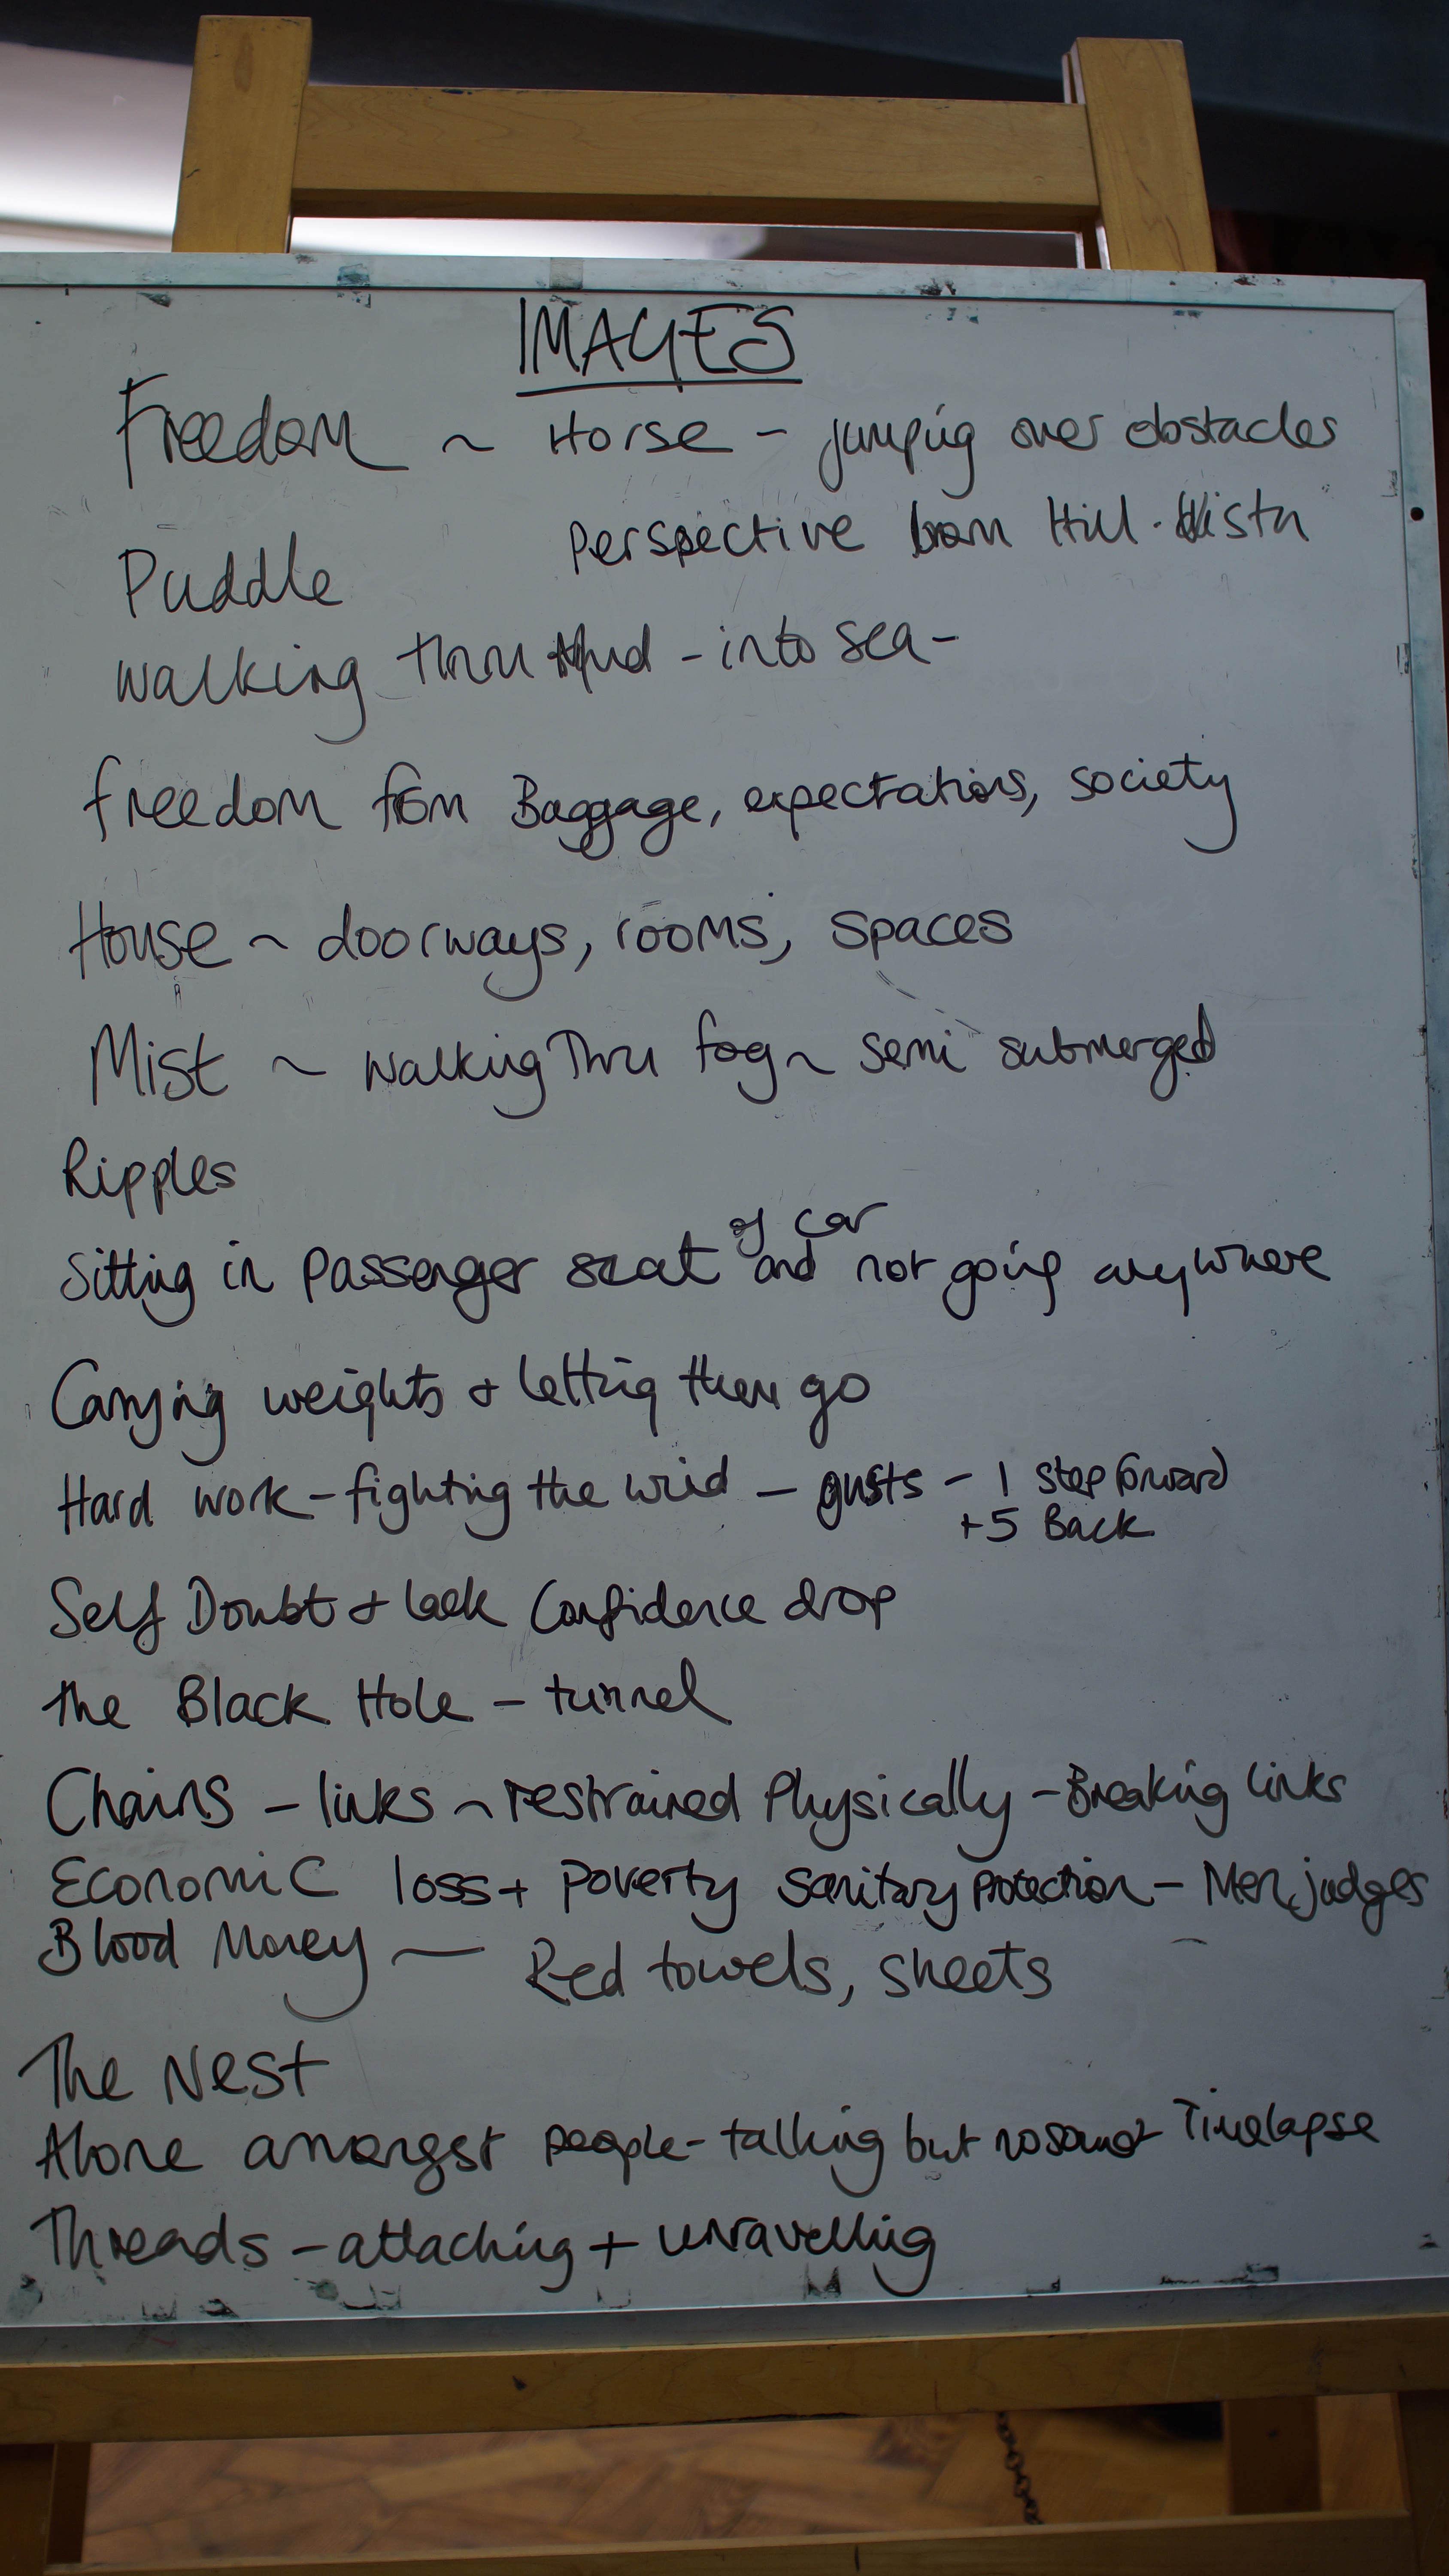 IMAGES
Freedom ~ Horse - jumping over obstacles
Perspective from Hill. Vista
Puddle
walking thru Mud - into sea -
freedom from Baggage, expectations, society
House ~ doorways, rooms, spaces
Mist ~ walking Thru fog ~ semi submerged
Ripples
of car
Sitting in passenger seat and not going anywhere
Carrying weights + letting them go
Hard work - fighting the wind - gusts - 1 step forward
+5 Back
Self Doubt + lack Confidence drop
the Black Hole - tunnel
Chains - links ~ restrained Physically - Breaking links
Economic loss + poverty sanitary protection - Men judges
Blood Money — Red towels, sheets
The Nest
Alone amongst people - talking but no sound Timelapse
Threads - attaching + unravelling